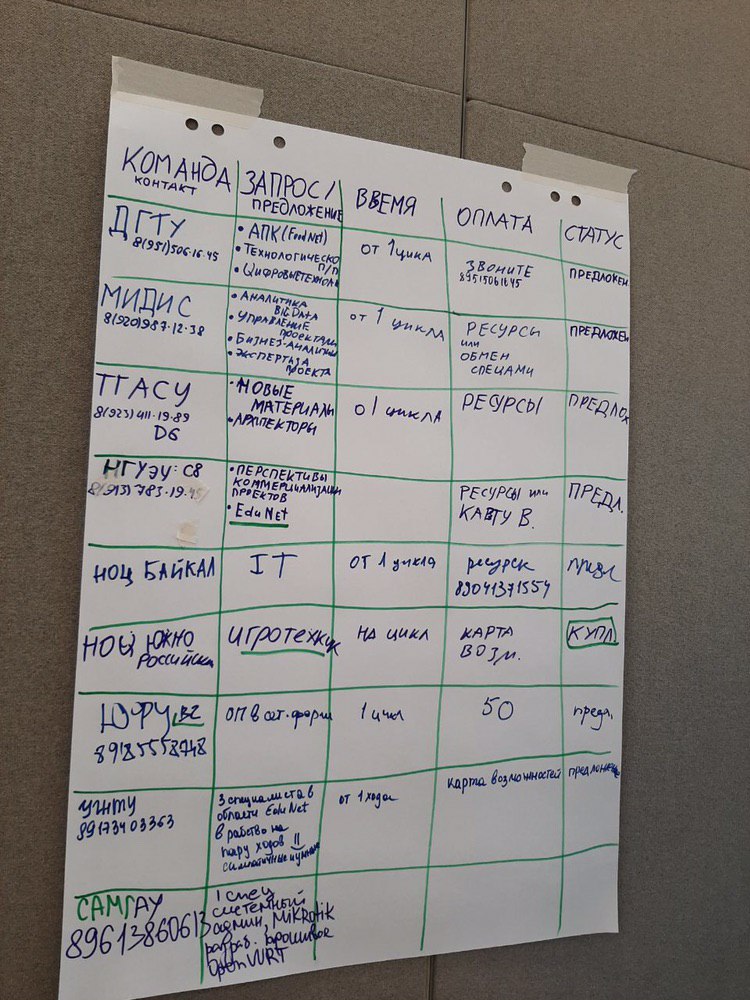 КОМАНДА
КОНТАКТ
ЗАПРОС/
ПРЕДЛОЖЕНИЕ
ВВЕМЯ
ОПЛАТА
СТАТУС
ДГТУ
8(951)506-16-45
• АПК (FoodNet)
• ТЕХНОЛОГИЧЕСКО
П/П
• ЦИФРОВЫЕ ТЕХНОЛ
ОТ 1 ЦИКА
ЗВОНИТЕ
89515061645
ПРЕДЛОЖЕН
МИДИС
8(920)987-12-38
• АНАЛИТИКА
BIG DATA
• УПРАВЛЕНИЕ
ПРОЕКТАМИ
• БИЗНЕС-АНАЛИТИК
• ЭКСПЕРТИЗА
ПРОЕКТА
ОТ 1 ЦИКЛА
РЕСУРСЫ
ИЛИ
ОБМЕН
СПЕЦАМИ
ПРЕДЛОЖЕН
ТГАСУ
8(923)411-19-89
D6
• НОВЫЕ
МАТЕРИАЛЫ
• АРХИТЕКТОРЫ
О 1 ЦИКЛА
РЕСУРСЫ
ПРЕДЛОЖ
НГУЭУ: C8
8(913)783-19-45
• ПЕРСПЕКТИВЫ
КОММЕРЦИАЛИЗАЦИИ
ПРОЕКТОВ
• EduNet
РЕСУРСЫ ИЛИ
КАРТУ В.
ПРЕДЛ.
НОЦ БАЙКАЛ
IT
ОТ 1 цикла
ресурск
89041371554
предл
НОЦ ЮЖНО
РОССИЙСКИ
ИГРОТЕХНИК
НА ЦИКЛ
КАРТА
ВОЗМ.
КУПЛ
ЮФУ B2
89185558748
ОП в сет. форм
1 цикл
50
предл.
УГНТУ
89173403363
3 специалиста в
области EduNet
в рабство на
пару ходов
симпатичные
от 1 хода
карта возможностей
предложение
САМГАУ
89613860613
1 спец
системный
админ, MikRotik
разраб. прошивок
OpenWRT